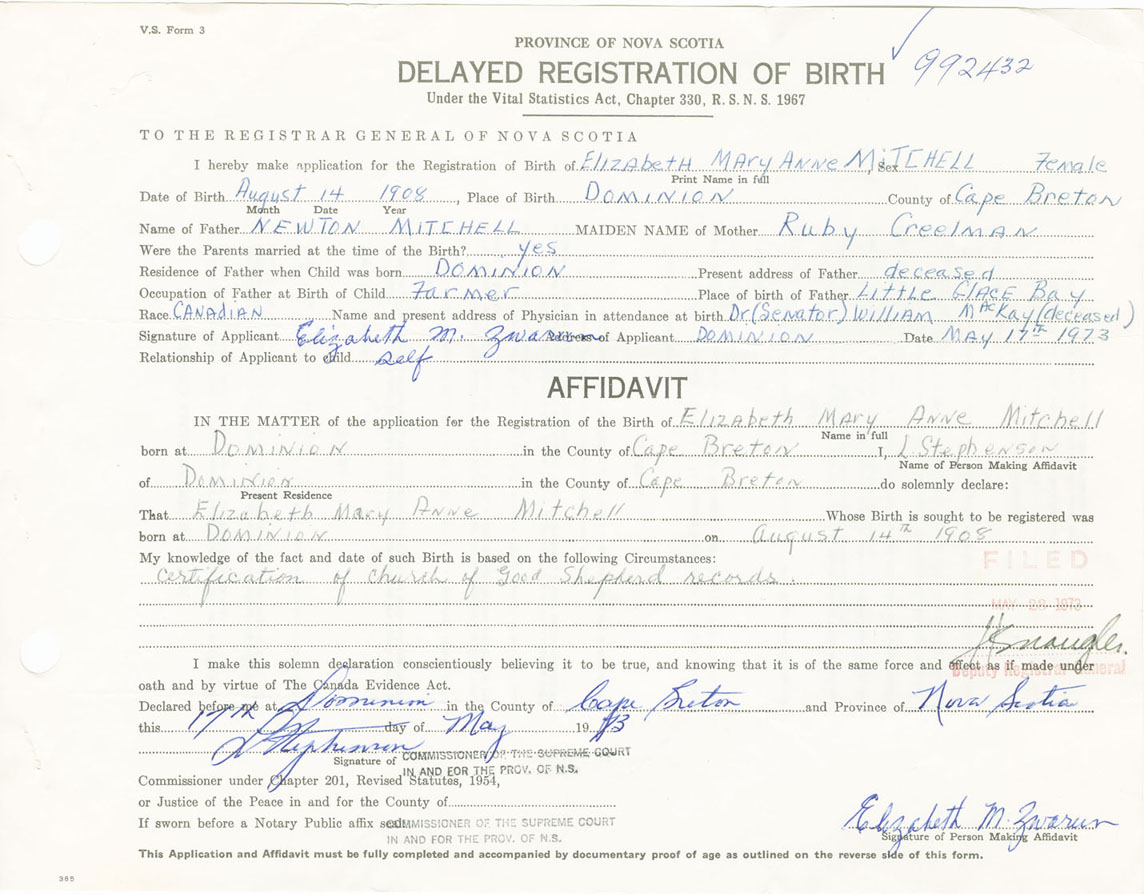 V.S. Form 3
PROVINCE OF NOVA SCOTIA
DELAYED REGISTRATION OF BIRTH 992432
Under the Vital Statistics Act, Chapter 330, R.S.N.S. 1967
TO THE REGISTRAR GENERAL OF NOVA SCOTIA
I hereby make application for the Registration of Birth of Elizabeth Mary Anne Mitchell, Sex Female
Print Name in full
Date of Birth August 14 1908, Place of Birth Dominion County of Cape Breton
Month Date Year
Name of Father Newton Mitchell MAIDEN NAME of Mother Ruby Creelman
Were the Parents married at the time of the Birth? yes
Residence of Father when Child was born Dominion Present address of Father deceased
Occupation of Father at Birth of Child Farmer Place of birth of Father Little Glace Bay
Race Canadian Name and present address of Physician in attendance at birth Dr (Senator) William MacKay (deceased)
Signature of Applicant Elizabeth M. Zwarun Address of Applicant Dominion Date May 17th 1973
Relationship of Applicant to child self
AFFIDAVIT
IN THE MATTER of the application for the Registration of the Birth of Elizabeth Mary Anne Mitchell
Name in full
born at Dominion in the County of Cape Breton I, L Stephenson
Name of Person Making Affidavit
of Dominion in the County of Cape Breton do solemnly declare:
Present Residence
That Elizabeth Mary Anne Mitchell Whose Birth is sought to be registered was
born at Dominion on August 14th 1908
My knowledge of the fact and date of such Birth is based on the following Circumstances:
certification of church of Good Shepherd records.
FILED
MAY 28 1973
Deputy Registrar General
I make this solemn declaration conscientiously believing it to be true, and knowing that it is of the same force and effect as if made under
oath and by virtue of The Canada Evidence Act.
Declared before me at Dominion in the County of Cape Breton and Province of Nova Scotia
this 17th day of May 1973
L Stephenson
Signature of COMMISSIONER OF THE SUPREME COURT
IN AND FOR THE PROV. OF N.S.
Commissioner under Chapter 201, Revised Statutes, 1954,
or Justice of the Peace in and for the County of
If sworn before a Notary Public affix seal. COMMISSIONER OF THE SUPREME COURT
IN AND FOR THE PROV. OF N.S.
Elizabeth M. Zwarun
Signature of Person Making Affidavit
This Application and Affidavit must be fully completed and accompanied by documentary proof of age as outlined on the reverse side of this form.
365